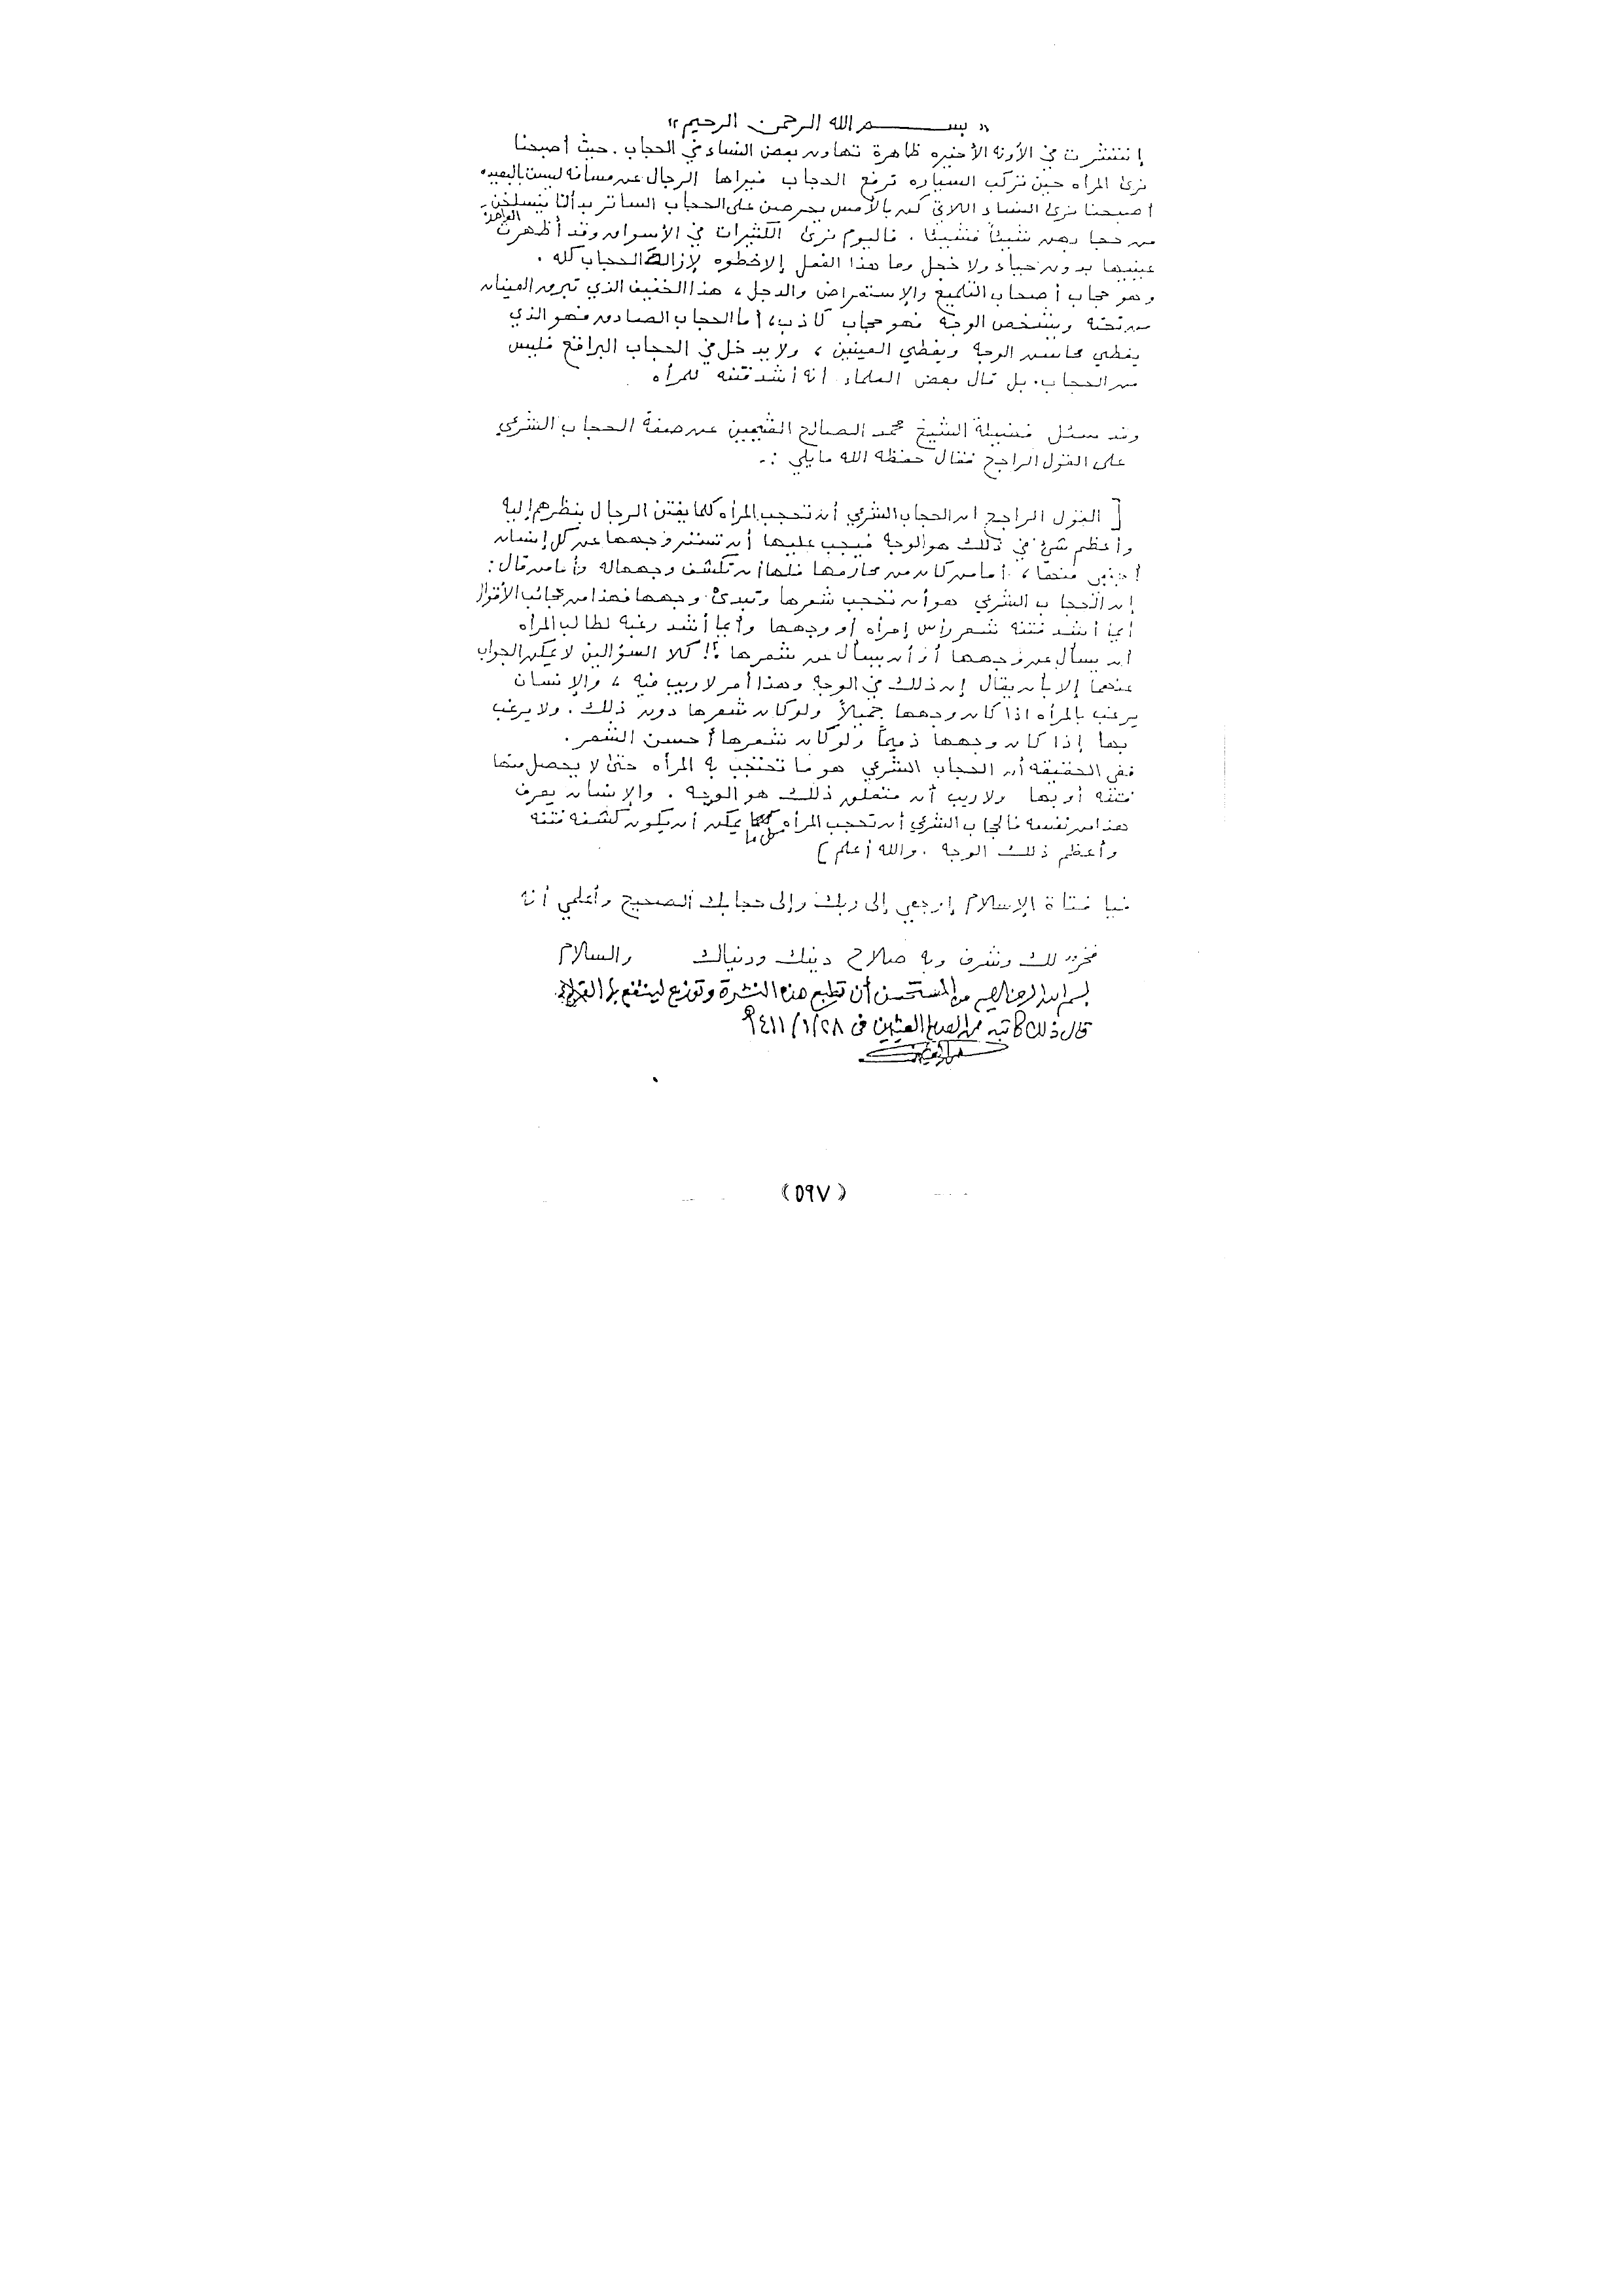 " بســـــم الله الرحمن الرحيم "
إنتشرت في الأونه الأخيره ظاهرة تهاون بعض النساء في الحجاب . حيث أصبحنا
نرى المرأه حين تركب السياره ترفع الحجاب فيراها الرجال عن مسافه ليست بالبعيده
أصبحنا نرى النساء اللاتي كن بالأمس يحرصن على الحجاب الساتر بدأنا ينسلخن
من حجابهن شيئاً فشيئا . فاليوم نرى الكثيرات في الأسواق وقد أظهرت الواحدة
عينيها بدون حياء ولا خجل وما هذا الفعل إلا خطوه لإزالة الحجاب كله .
وهو حجاب أصحاب التلميع والإستعراض والدجل ، هذا الخفيف الذي تبرق العينان
من تحته ويشخص الوجه فهو حجاب كاذب ، أما الحجاب الصادق فهو الذي
يغطي محاسن الوجه ويغطي العينين ، ولا يدخل في الحجاب البراقع فليس
من الحجاب . بل قال بعض العلماء انه أشد فتنه للمرأه
وقد سئل فضيلة الشيخ محمد الصالح العثيمين عن صفة الحجاب الشرعي
على القول الراجح فقال حفظه الله مايلي :ـ
[ القول الراجح ان الحجاب الشرعي أن تحجب المرأه كلما يفتن الرجال بنظرهم إليه
وأعظم شئ في ذلك هو الوجه فيجب عليها أن تستر وجهها عن كل إنسان
أجنبي منها ، أما من كان من محارمها فلها أن تكشف وجهها له وأما من قال :
إن الحجاب الشرعي هو أن تحجب شعرها وتبدئ وجهها فهذا من عجائب الأقوال
أيما أشد فتنه شعر رأس إمرأه أو وجهها وأيما أشد رغبه لطالب المرأه
ان يسأل عن وجهها أو أن يسأل عن شعرها ؟! كلا السؤالين لا يمكن الجواب
عنهما إلا بأن يقال إن ذلك في الوجه وهذا أمر لا ريب فيه ، والإنسان
يرغب بالمرأه اذا كان وجهها جميلاً ولو كان شعرها دون ذلك . ولا يرغب
بها إذا كان وجهها ذميماً ولو كان شعرها أحسن الشعر .
ففي الحقيقه أن الحجاب الشرعي هو ما تحتجب به المرأه حتى لا يحصل منها
فتنه أو بها ولا ريب أن متعلق ذلك هو الوجه . والإنسان يعرف
هذا من نفسه فالحجاب الشرعي أن تحجب المرأه كل ما يمكن أن يكون كشفه فتنه
وأعظم ذلك الوجه . والله أعلم )
فيا فتاة الإسلام إرجعي إلى ربك وإلى حجابك الصحيح وأعلمي أنه
فخر لك وشرف وبه صلاح دينك ودنياك والسلام
بسم الله الرحمن الرحيم من المستحسن أن تطبع هذه النشرة وتوزع لينتفع بها القراء
قال ذلك كاتبه محمد الصالح العثيمين في ١٤١١/١/٢٨هـ
(٥٩٧)